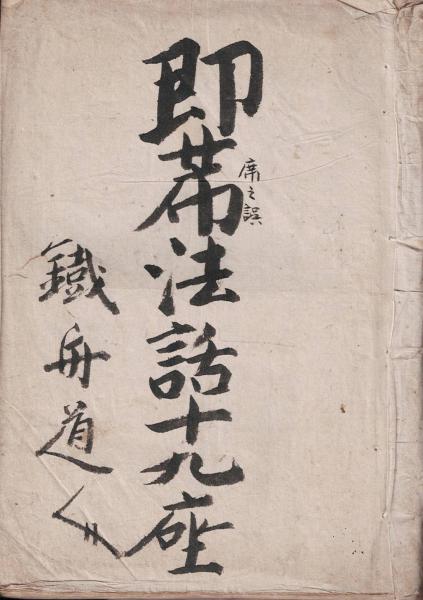 即蓆法話十九座
席之誤
鐵舟道人